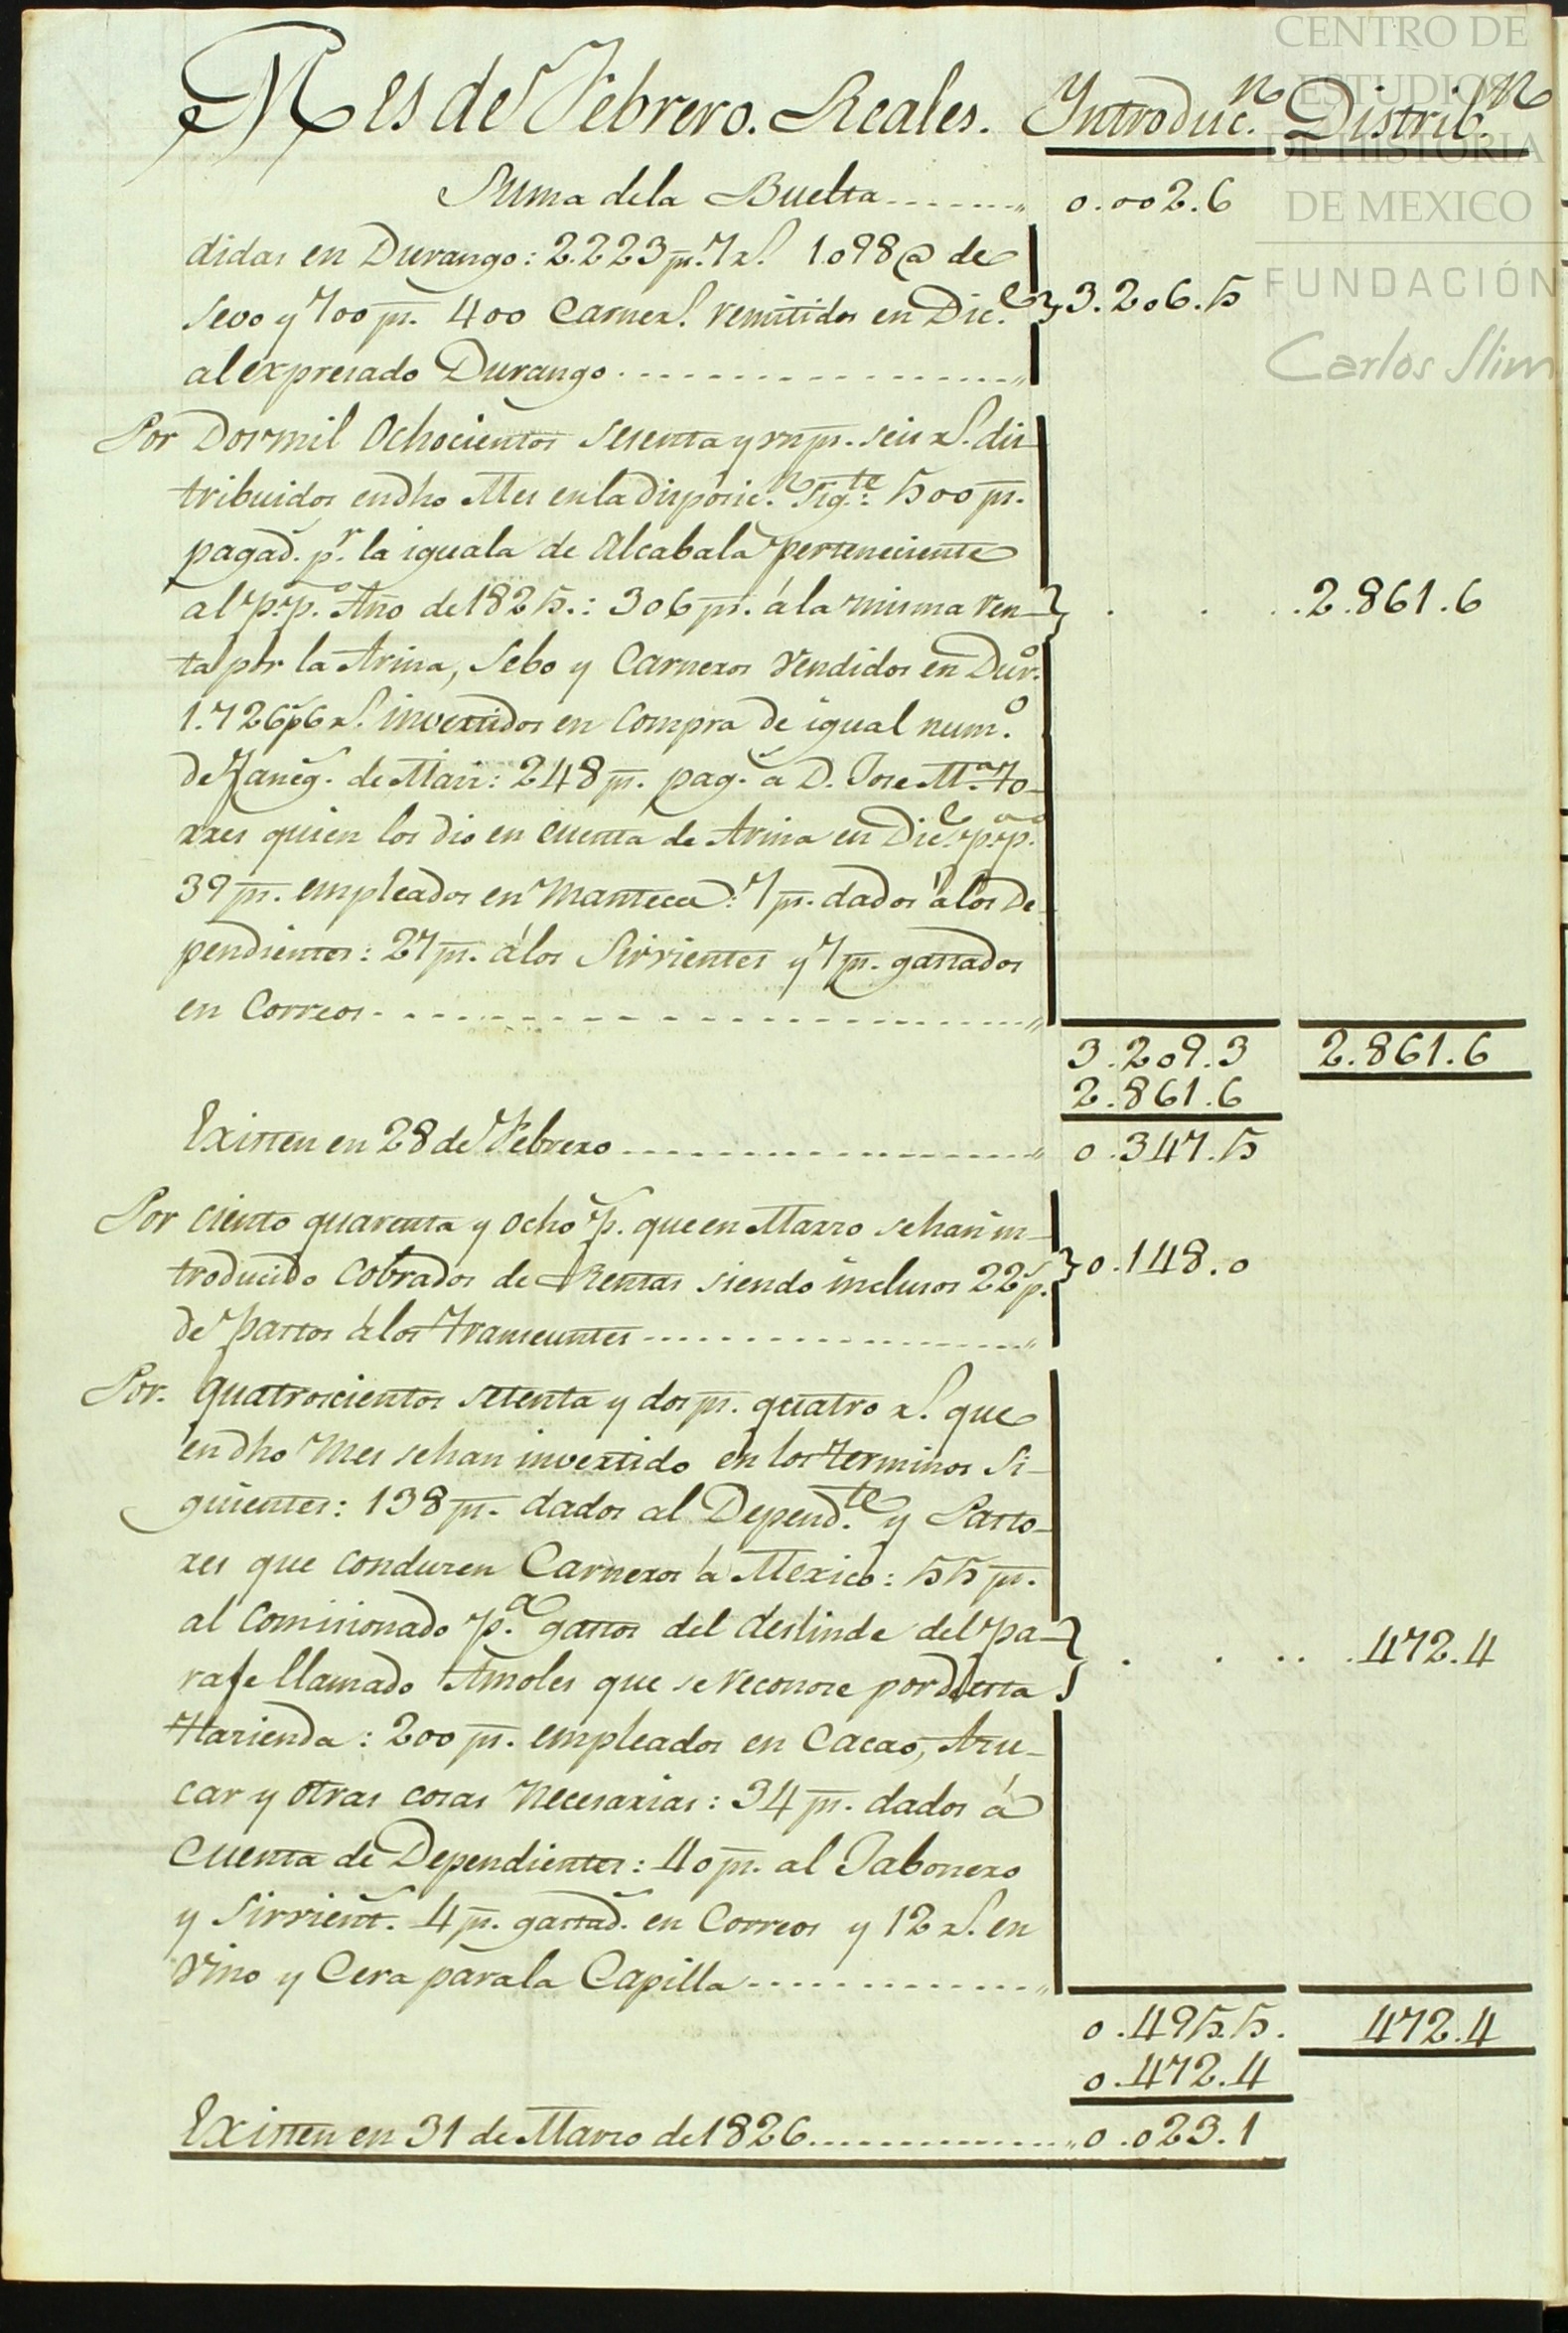 Mes de Febrero. Reales. Introduc.n Distrib.n
Suma dela Buelta........ 0.002.6
didas en Durango: 2.223 ps. 7 rs. 1.098 @ de
sevo y 700 ps. 400 Carners. remitidos en Dice. 3.206.5
al expresado Durango.
Por Dos mil Ochocientos sesenta y un ps. seis rs. dis-
tribuidos en dho Mes en la disposic.n sig.te: 500 ps.
pagad. pr. la iguala de Alcabala perteneciente
al p.p.o Año de 1825.: 306 ps. á la misma ven- 2.861.6
ta por la Arina, Sebo y Carneros vendidos en Dur.o
1.726 p 6 rs. invertidos en compra de igual num.o
de Faneg. de Mais: 248 ps. pag.s a D. Jose M.a To-
rres quien los dio en cuenta de Arina en Dice. p.o p.o
39 ps. empleados en Manteca: 7 ps. dados á los De-
pendientes: 27 ps. á los Sirvientes y 7 ps. gastados
en Correos
3.209.3 2.861.6
2.861.6
Existen en 28 de Febrero 0.347.5
Por ciento quarenta y ocho ps. que en Marzo se han in-
troducido cobrados de Rentas siendo inclusos 22 ps. 0.148.0
de pastos á los transeuntes
Por. quatrocientos setenta y dos ps. quatro rs. que
en dho Mes se han invertido en los terminos Si-
guientes: 138 ps. dados al Depend.te y Pasto-
res que conduzen Carneros á Mexico: 55 ps.
al comisionado p.a gastos del deslinde del pa-
rage llamado Amoles que se reconoce por de esta 472.4
Hazienda: 200 ps. empleados en Cacao, Azu-
car y otras cosas necesarias: 34 ps. dados á
cuenta de Dependientes: 40 ps. al Jabonero
y Sirvient. 4 ps. gastad. en Correos y 12 rs. en
vino y Cera para la Capilla
0.495.5. 472.4
0.472.4
Existen en 31 de Marzo de 1826 0.023.1
CENTRO DE
ESTUDIOS
DE HISTORIA
DE MEXICO
FUNDACIÓN
Carlos Slim